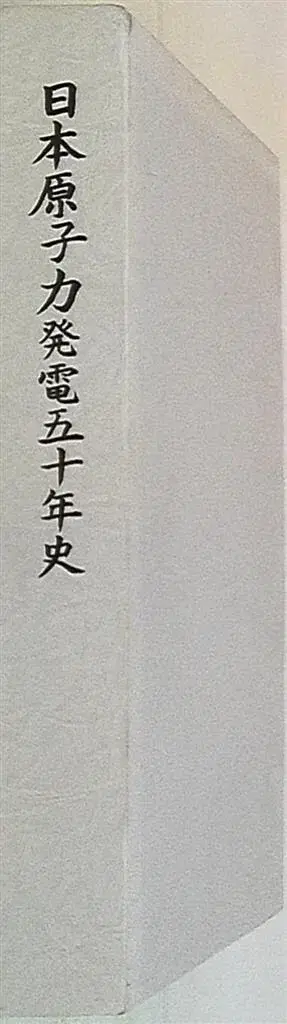 日本原子力発電五十年史